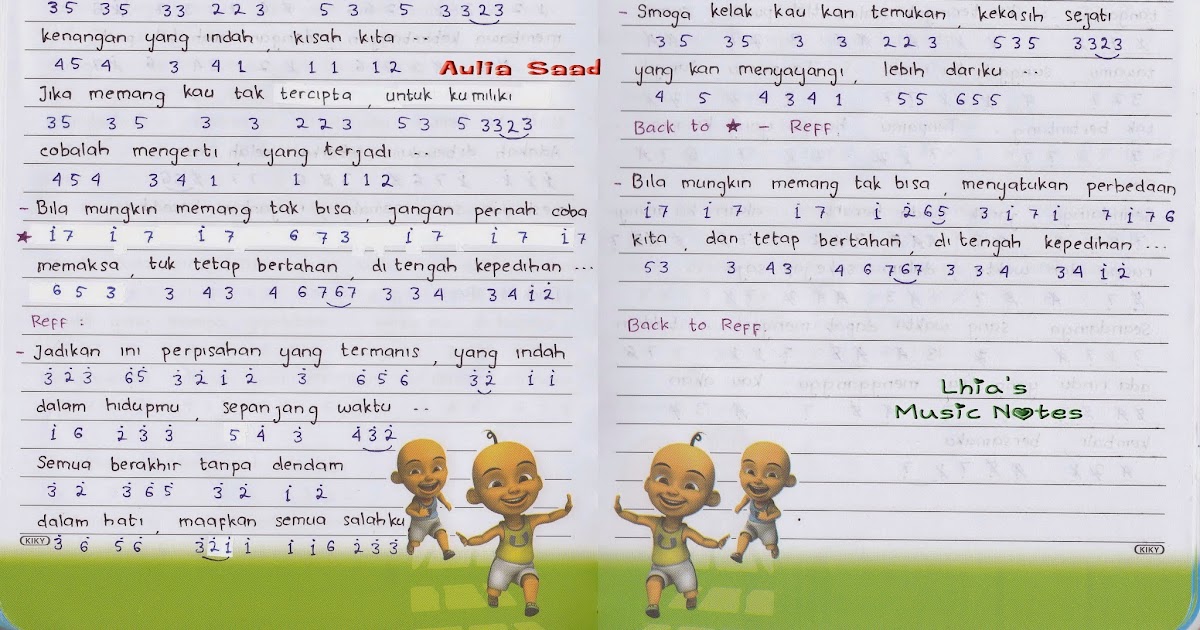 35 35 33 2 2 3 5 3 5 3323
kenangan yang indah, kisah kita ...
4 5 4 3 4 1 1 1 1 2
Aulia Saad
Jika memang kau tak tercipta, untuk ku miliki
35 3 5 3 3 2 2 3 5 3 5 3323
cobalah mengerti, yang terjadi ...
4 5 4 3 4 1 1 1 1 2
- Bila mungkin memang tak bisa jangan pernah coba
★ i̇ 7 i̇ 7 i̇ 7 6 7 3 i̇ 7 i̇ 7 i̇ 7
memaksa, tuk tetap bertahan, di tengah kepedihan ...
6 5 3 3 4 3 4 6 767 3 3 4 3 4 i̇ 2̇
Reff :
- Jadikan ini perpisahan yang termanis, yang indah
3̇ 2̇ 3̇ 65 3̇ 2̇ i̇ 2̇ 3̇ 6 5 6 3̇2̇ i̇ i̇
dalam hidupmu, sepanjang waktu ..
i̇ 6 2̇ 3̇ 3̇ 5 4̇ 3̇ 4̇3̇2̇
Semua berakhir tanpa dendam
3̇ 2̇ 3̇ 6 5 3̇ 2̇ i̇ 2̇
dalam hati, maafkan semua salahku
KIKY
3̇ 6 5 6 3̇2̇i̇ i̇ i̇ i̇ 6 2̇ 3̇ 3̇
- Smoga kelak kau kan temukan kekasih sejati
3 5 3 5 3 3 2 2 3 5 3 5 3323
yang kan menyayangi, lebih dariku ...
4 5 4 3 4 1 5 5 6 5 5
Back to ★ - Reff.
- Bila mungkin memang tak bisa, menyatukan perbedaan
i̇ 7 i̇ 7 i̇ 7 i̇ 2̇ 65 3 i̇ 7 i̇ 7 i̇ 7 6
kita, dan tetap bertahan, di tengah kepedihan ...
5 3 3 4 3 4 6 767 3 3 4 3 4 i̇ 2̇
Back to Reff.
Lhia's
Music Notes
KIKY